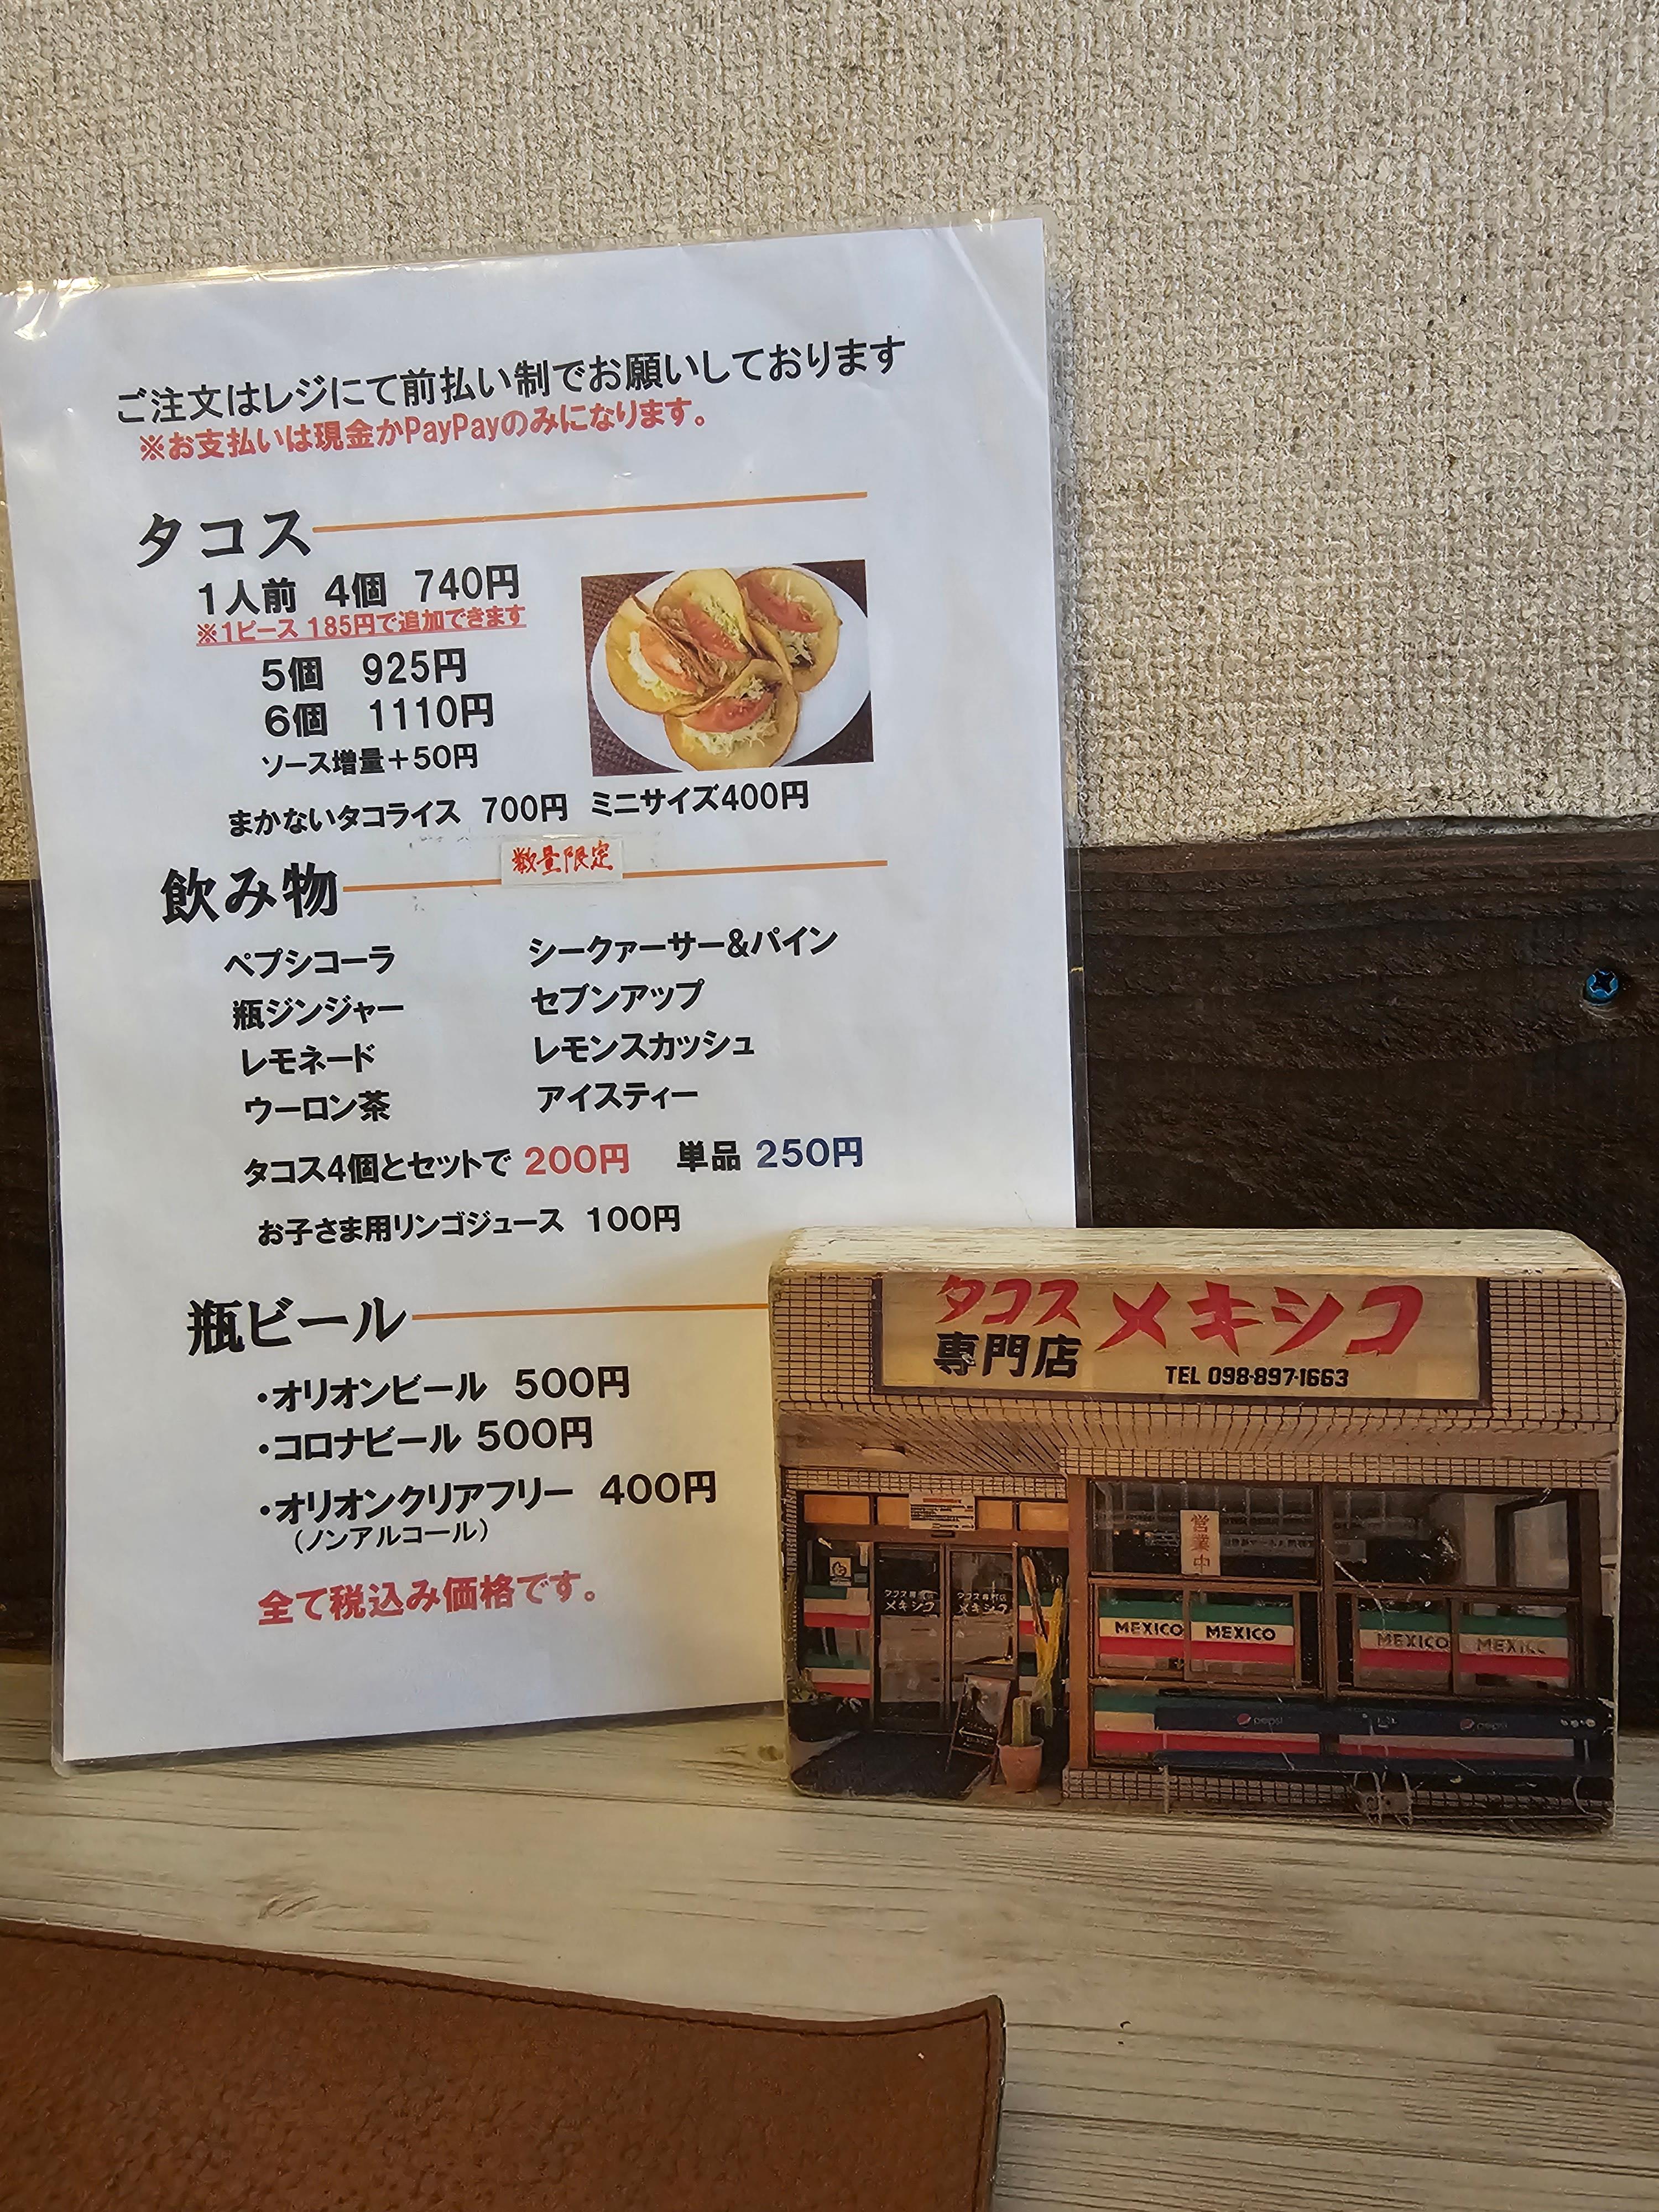 ご注文はレジにて前払い制でお願いしております
※お支払いは現金かPayPayのみになります。
タコス
1人前 4個 740円
※1ピース 185円で追加できます
5個 925円
6個 1110円
ソース増量+50円
まかないタコライス 700円 ミニサイズ400円
数量限定
飲み物
ペプシコーラ シークァーサー&パイン
瓶ジンジャー セブンアップ
レモネード レモンスカッシュ
ウーロン茶 アイスティー
タコス4個とセットで 200円 単品 250円
お子さま用リンゴジュース 100円
瓶ビール
・オリオンビール 500円
・コロナビール 500円
・オリオンクリアフリー 400円
(ノンアルコール)
全て税込み価格です。
タコス専門店 メキシコ
TEL 098-897-1663
営業中
タコス専門店 タコス専門店
メキシコ メキシコ
MEXICO MEXICO MEXICO MEXICO
pepsi pepsi